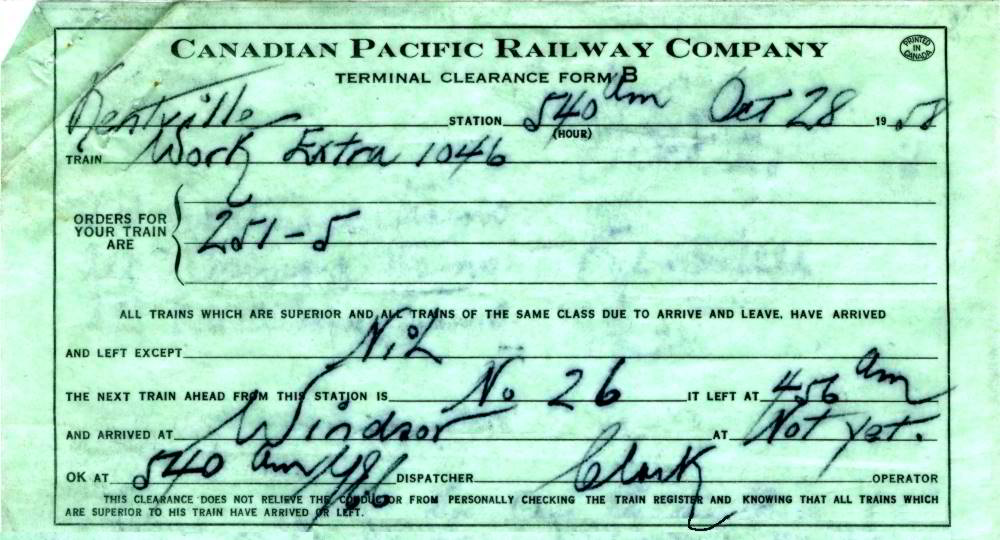 CANADIAN PACIFIC RAILWAY COMPANY
PRINTED IN CANADA
TERMINAL CLEARANCE FORM B
Kentville STATION 540 am (HOUR) Oct 28 1958
TRAIN Work Extra 1046
ORDERS FOR YOUR TRAIN ARE
251-5
ALL TRAINS WHICH ARE SUPERIOR AND ALL TRAINS OF THE SAME CLASS DUE TO ARRIVE AND LEAVE, HAVE ARRIVED
AND LEFT EXCEPT Nil
THE NEXT TRAIN AHEAD FROM THIS STATION IS No 26 IT LEFT AT 456 am
AND ARRIVED AT Windsor AT Not yet.
OK AT 540 am DISPATCHER Clark OPERATOR
THIS CLEARANCE DOES NOT RELIEVE THE CONDUCTOR FROM PERSONALLY CHECKING THE TRAIN REGISTER AND KNOWING THAT ALL TRAINS WHICH
ARE SUPERIOR TO HIS TRAIN HAVE ARRIVED OR LEFT.